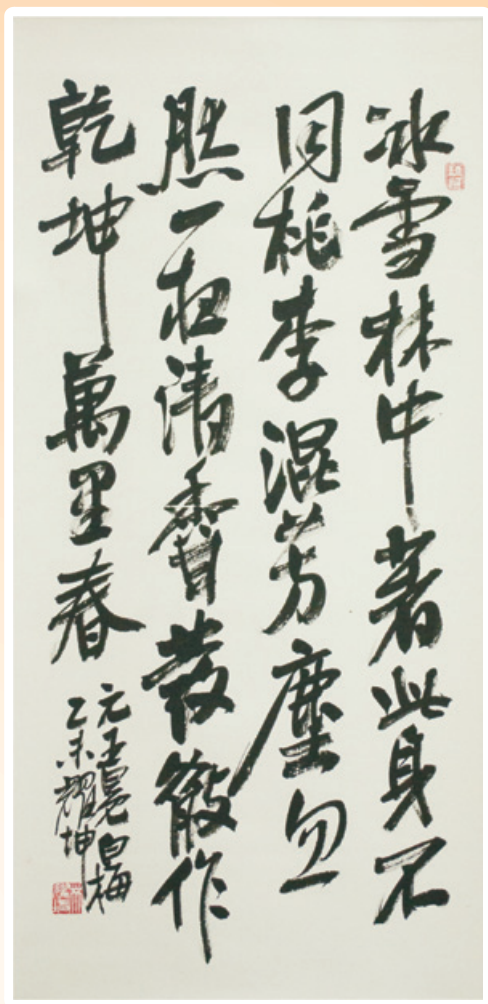 冰雪林中著此身不
同桃李混芳塵忽
然一夜清香發散作
乾坤萬里春
元王冕白梅
乙未耀坤